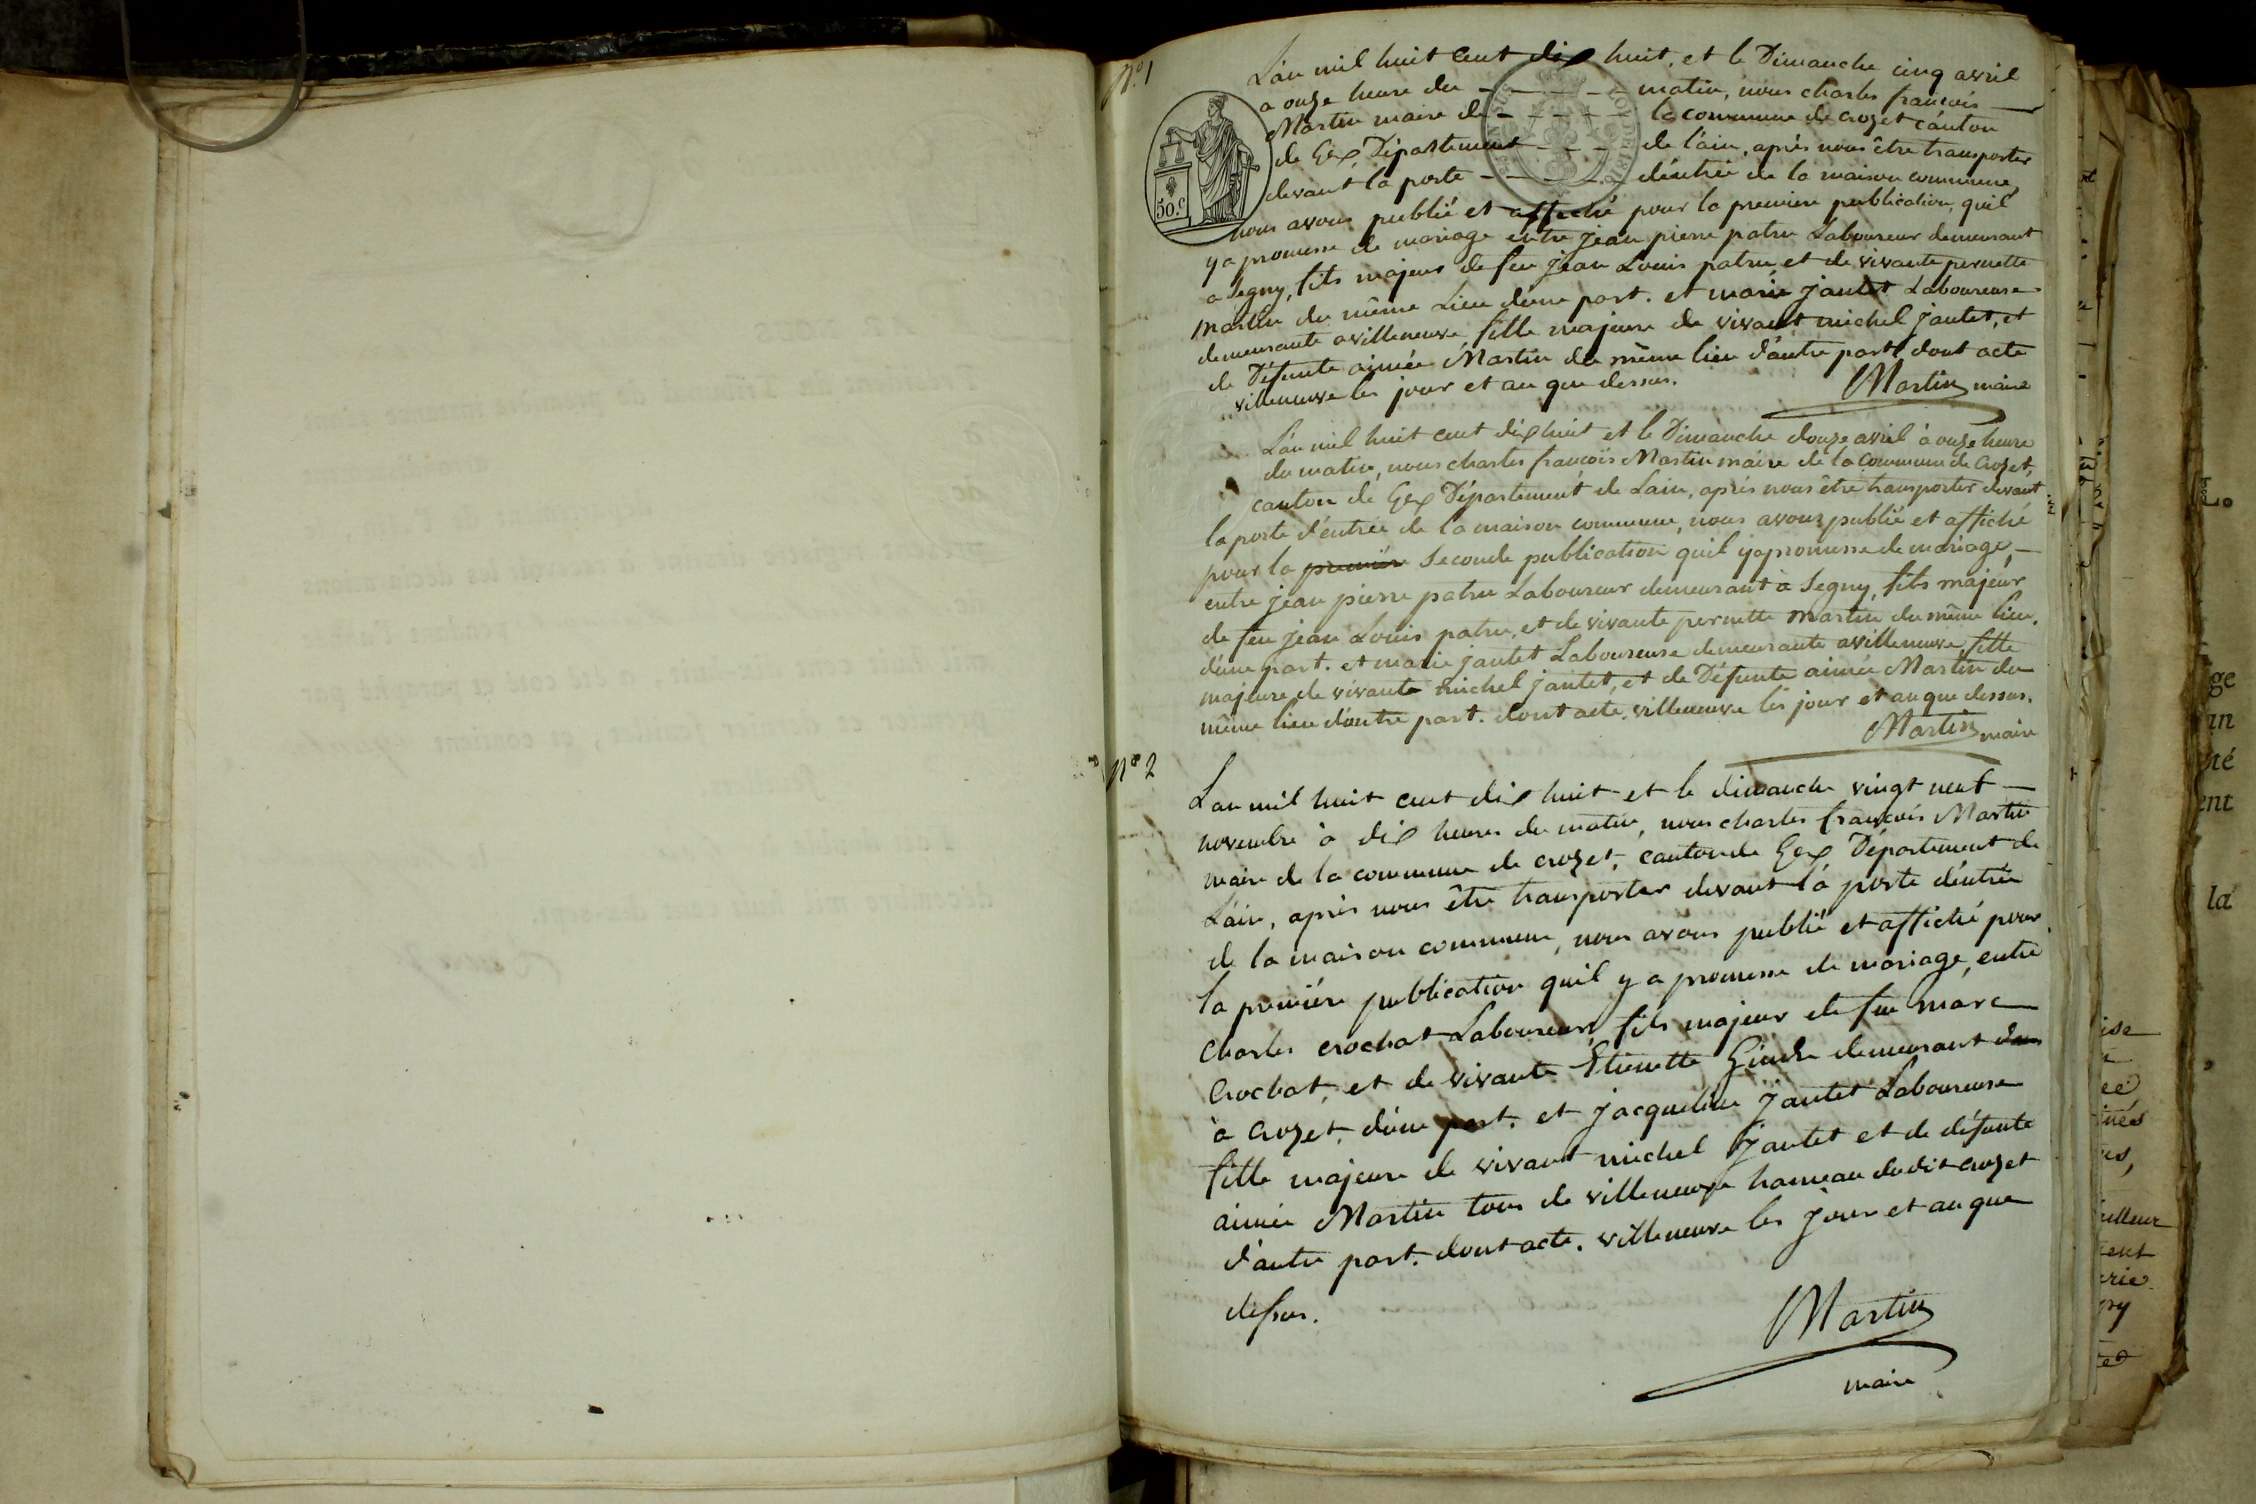 N.º 1
L'an mil huit cent dix huit, et le Dimanche cinq avril
a onze heure du - - - - - - matin, nous charles françois —
Martin maire de - - - - - la commune de crozet canton
de Gex, Département - - - de l'ain, après nous être transporter
devant la porte - - - - - d'entrée de la maison commune,
nous avons publié et affiché pour la premiere publication, quil
y a promesse de mariage entre jean pierre patru Laboureur demeurant
a Segny, fils majeur de feu jean Louis patru et de vivante pernette
Martin du même Lieu d'une part. et marie jantet Laboureuse
demeurante a villeneuve, fille majeure de vivant michel jantet, et
de Défunte aimée Martin du même lieu d'autre part, dont acte
villeneuve les jour et an que dessus.
Martin maire
50.c
L'an mil huit cent dix huit et le Dimanche douze avril à onze heure
du matin, nous charles françois Martin maire de la commune de Crozet,
canton de Gex Département de Lain, après nous être transporter devant
la porte d'entrée de la maison commune, nous avons publié et affiché
pour la premiére Seconde publication quil y a promesse de mariage, —
entre jean pierre patru Laboureur demeurant à Segny, fils majeur
de feu jean Louis patru, et de vivante pernette Martin du même lieu,
d'une part. et marie jantet Laboureuse demeurante a villeneuve, fille
majeure de vivante michel jantet, et de Défunte aimée Martin du
même lieu d'autre part. dont acte. villeneuve les jour et an que dessus.
Martin maire
Nº 2
L'an mil huit cent dix huit et le dimanche vingt neuf —
novembre à dix heures du matin, nous charles françois Martin
maire de la commune de crozet, canton de Gex Département de
L'ain, après nous être transporter devant la porte d'entrée
de la maison commune, nous avons publié et affiché pour
la première publication quil y a promesse de mariage, entre
Charles crochat Laboureur, fils majeur de feu marc
Crochat, et de vivante Etienette Gindre demeurant
à Crozet, d'une part. et jacqueline jantet Laboureuse
fille majeure de vivant michel jantet et de défunte
aimée Martin tous de villeneuve hameau dudit crozet
d'autre part. dont acte. villeneuve les jour et an que
dessus.
Martin
maire